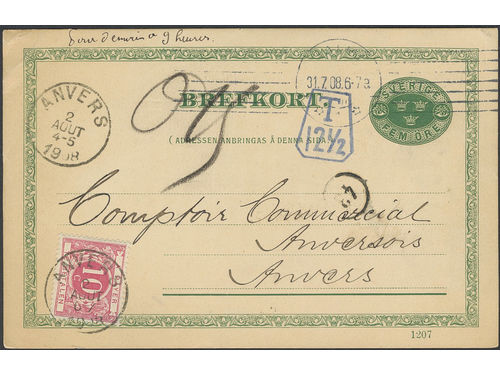 à 9 heures.
ANVERS
2
AOUT
4-5
1908
31.7.08.6-7
BREFKORT
SVERIGE
FEM ÖRE
T
12½
(ADRESSEN ANBRINGAS Å DENNA SIDA.)
Comptoir Commercial
Anversois
Anvers
ANVERS
10
AOUT
1207